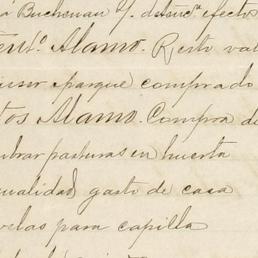 á Buchenau y. de sus efectos
ent.º Alamo. Resto val
parque comprado
tos Alamo. Compra de
brar pasturas en huerta
ualidad gasto de casa
velas para capilla